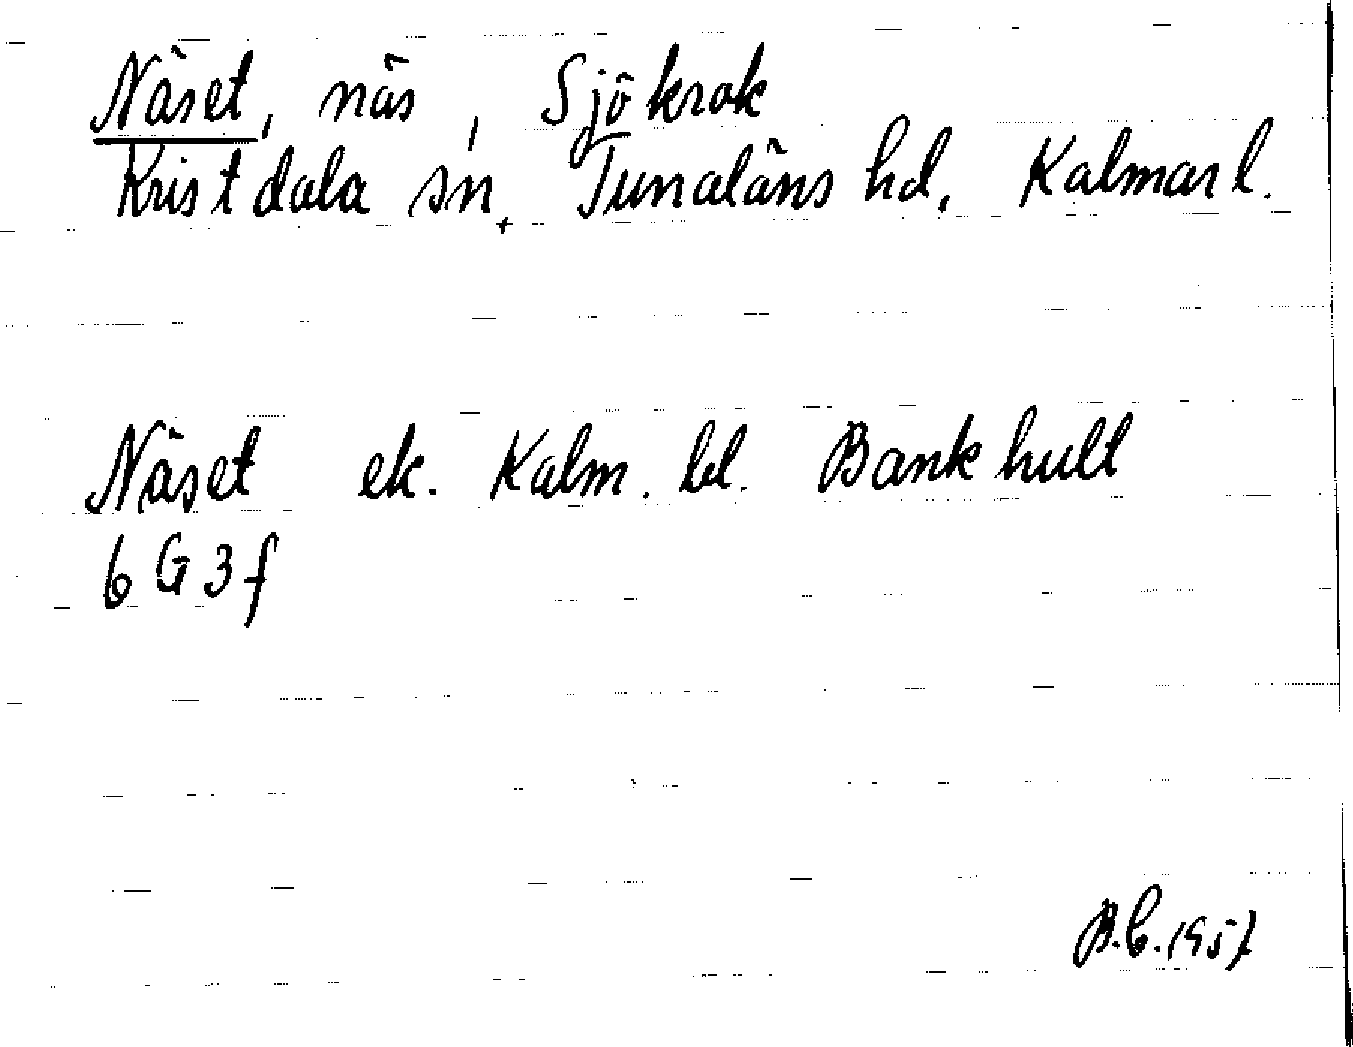 Näset, näs, Sjökrok
Kristdala sn. Tunaläns hd. Kalmar l.
Näset ek. Kalm. bl. Bankhult
6G3f
B.C. 1957